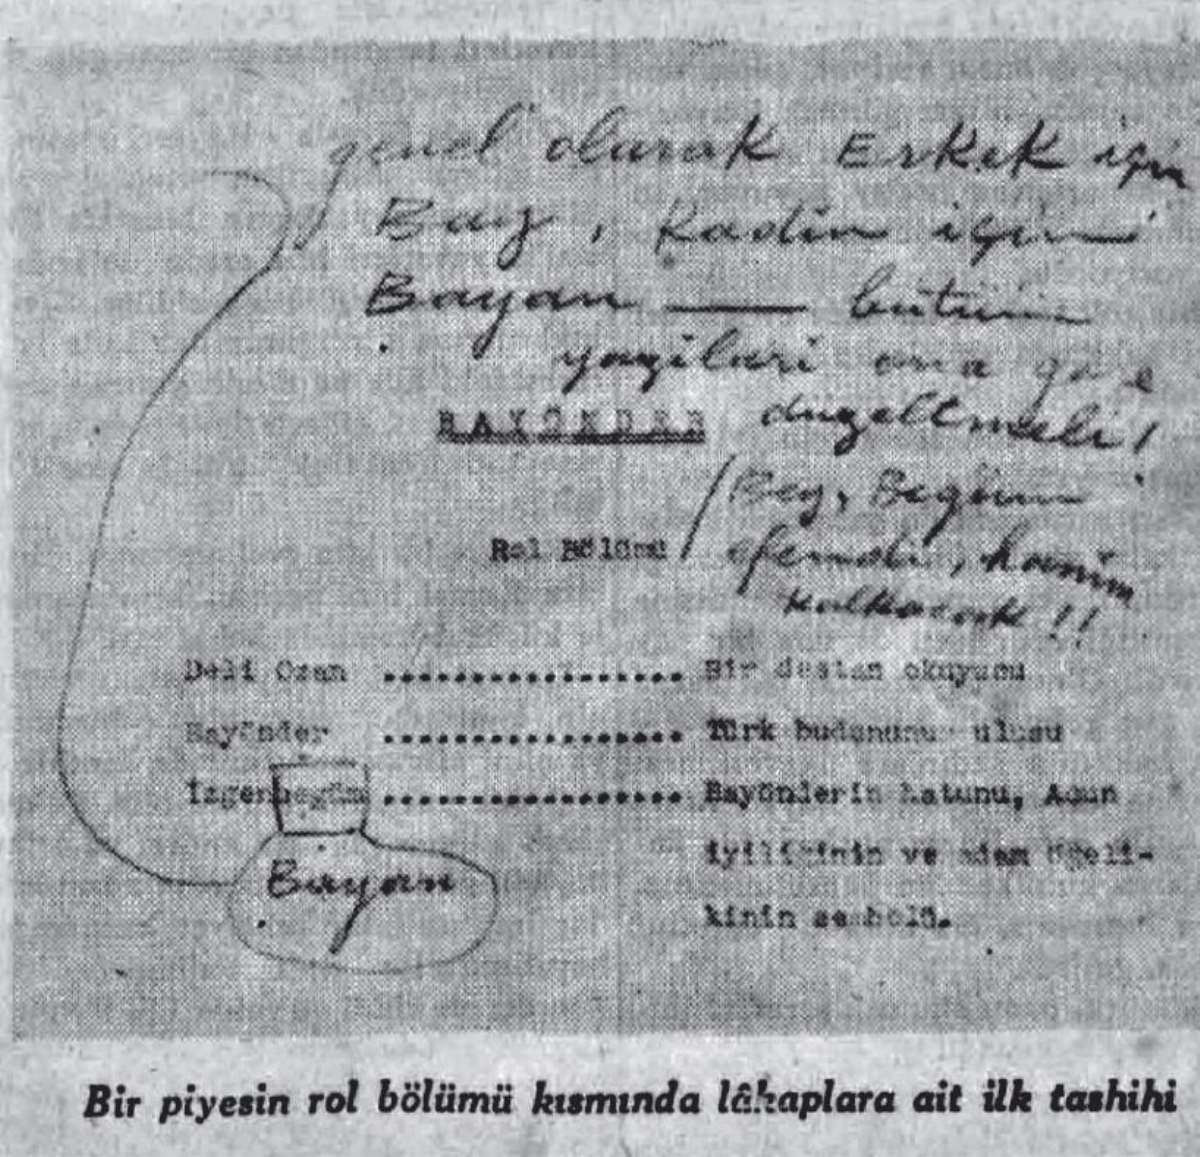 genel olarak Erkek için
Bay, Kadin için
Bayan — bütün
yazilari ona göre
düzeltmeli!
BAYÖNDER
Bey, Begüm
Rol Bölümü
efendi, hanim
kalkacak!!
Deli Ozan ................. Bir destan okuyucu
Bayönder ................. Türk budununun ulusu
İzgenbegüm ................. Bayönderin hatunu, Acun
iyiliğinin ve adam
kinin sembolü.
Bayan
Bir piyesin rol bölümü kısmında lâkaplara ait ilk tashihi